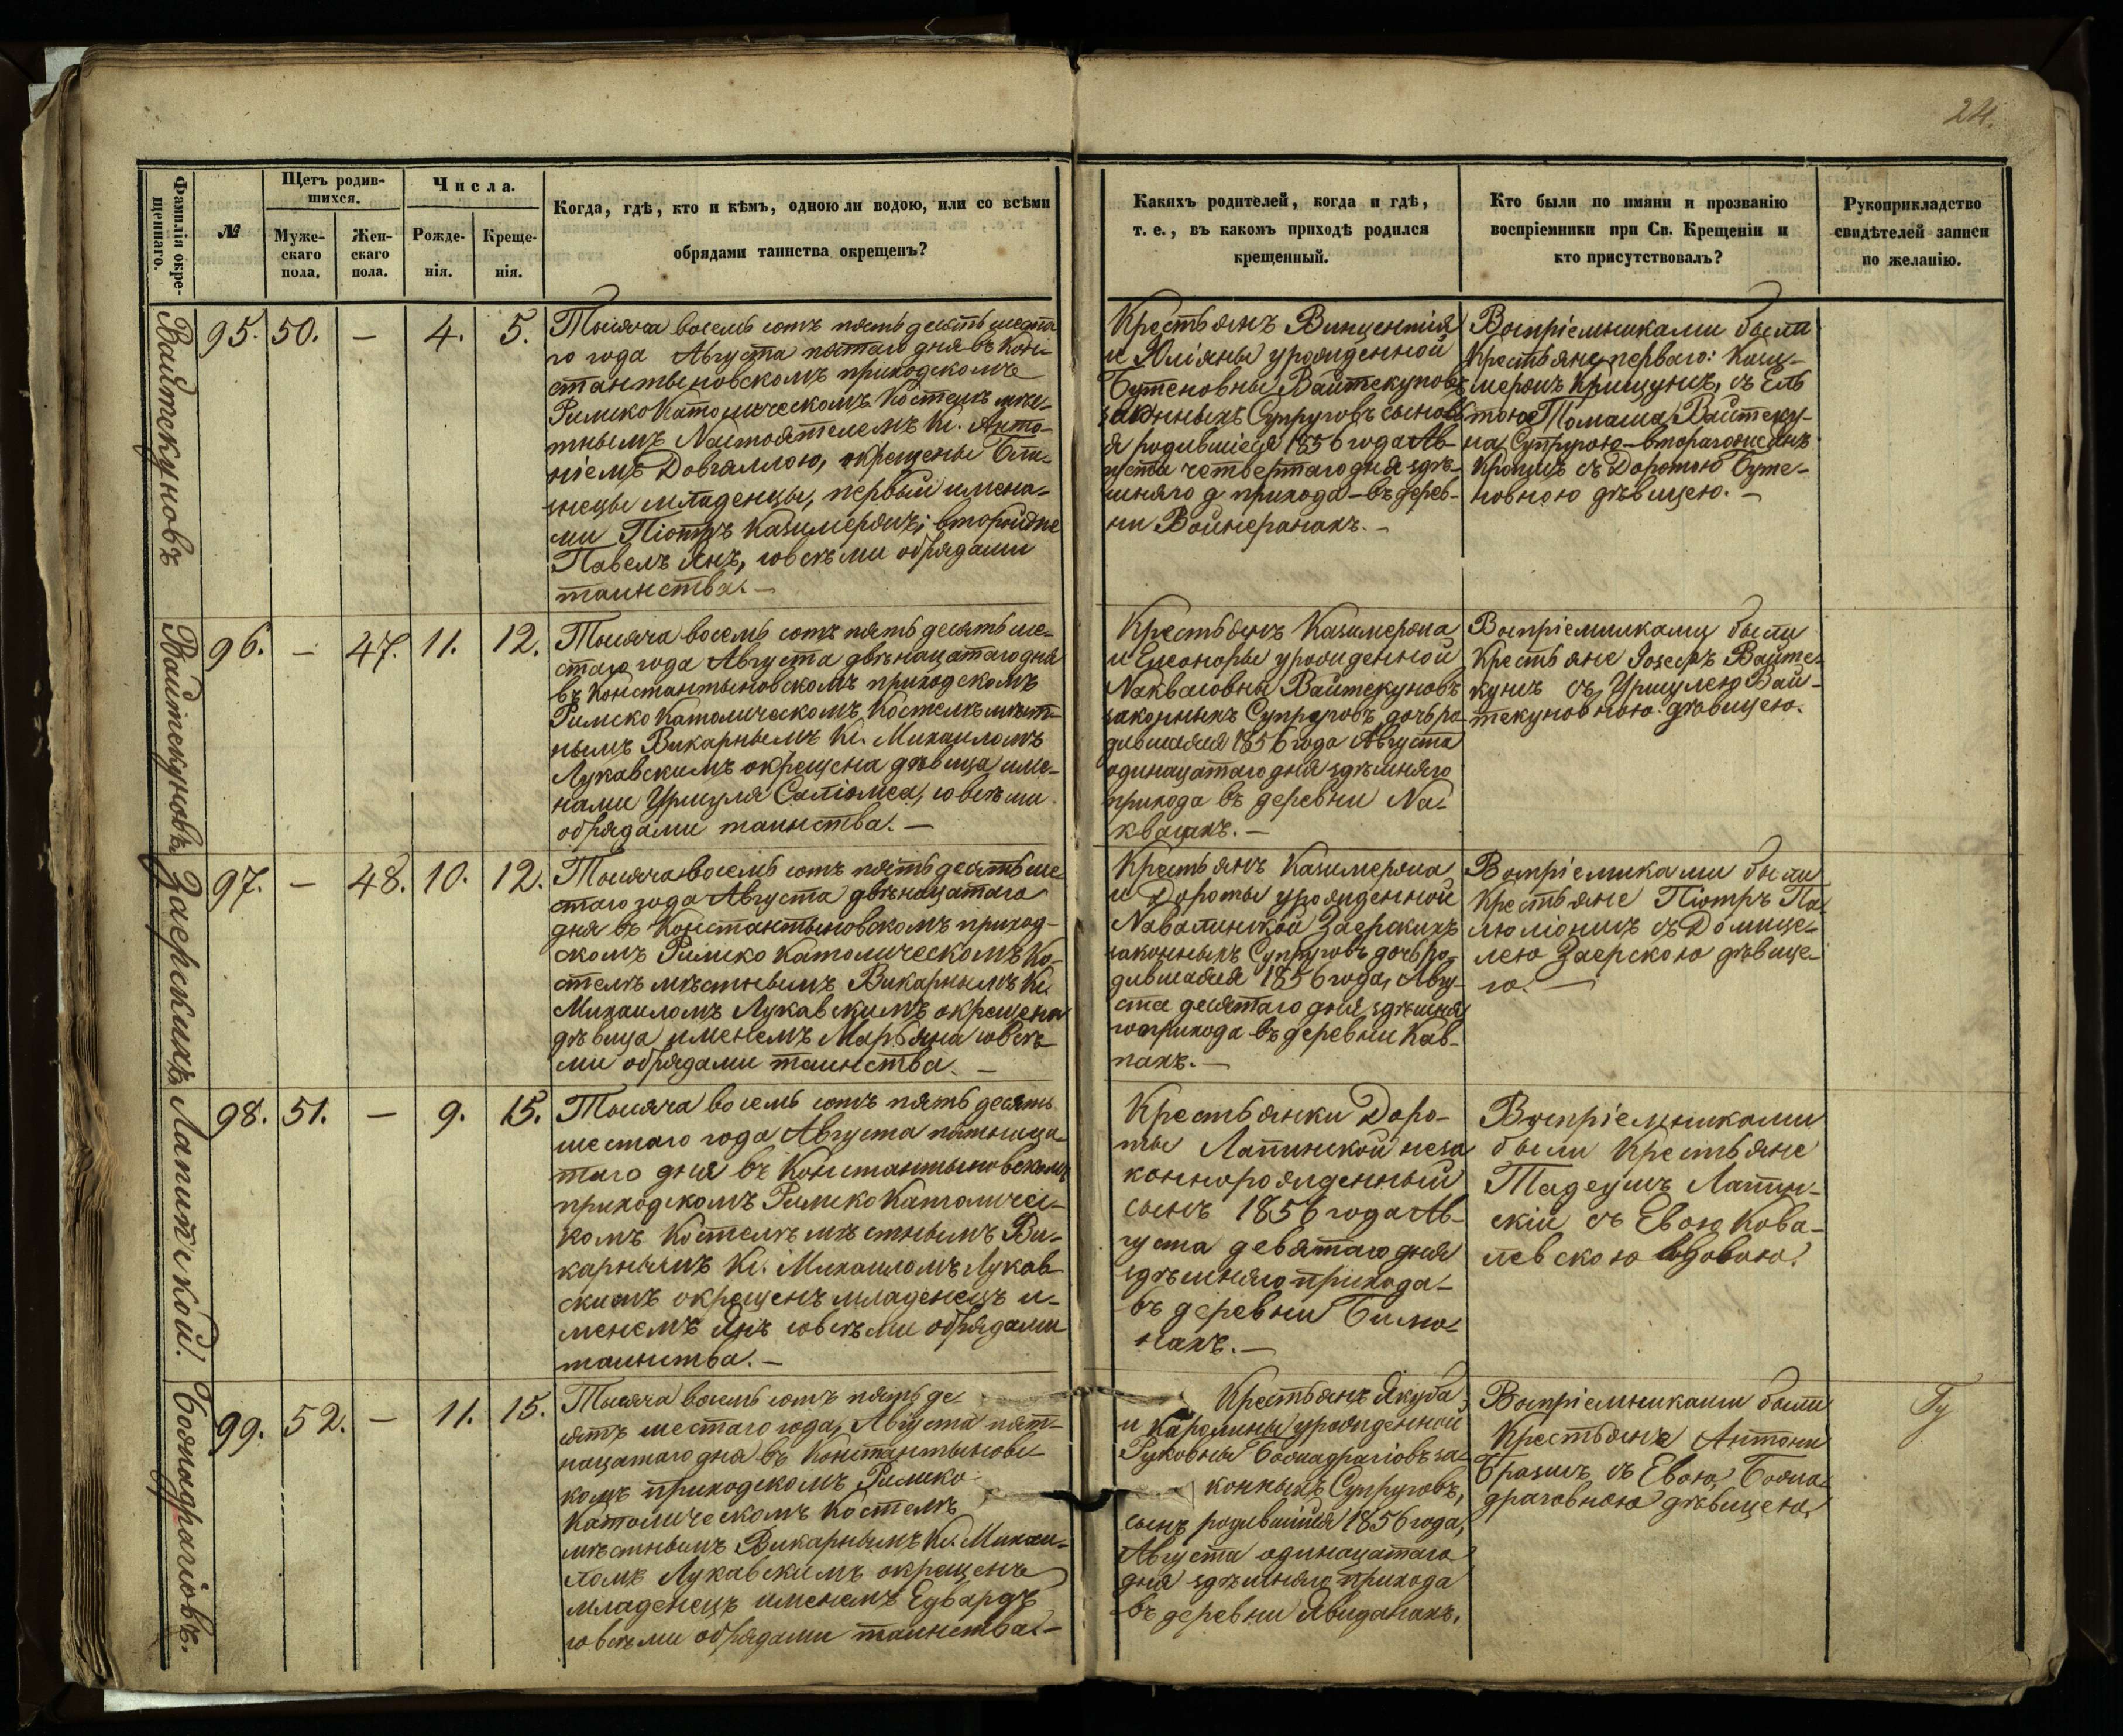 24.
Фамиліи окре-
щеннаго.
№
Щетъ родив-
шихся.
Муже-
скаго
пола.
Жен-
скаго
пола.
Числа.
Рожде-
нія.
Креще-
нія.
Когда, гдѣ, кто и кѣмъ, одною ли водою, или со всѣми
обрядами таинства окрещенъ?
Какихъ родителей, когда и гдѣ,
т. е., въ какомъ приходѣ родился
крещенный.
Кто были по имяни и прозванію
воспріемники при Св. Крещеніи и
кто присутствовалъ?
Рукоприкладство
свидѣтелей записи
по желанію.
Вайтекуновъ
95. 50. — 4. 5.
Тысяча восемь сотъ пять десять шеста
го года Августа пятаго дня въ Кон-
стантыновскомъ приходскомъ
Римско Католическомъ Костелѣ мѣс-
тнымъ Настоятелемъ Кс. Анто-
ніемъ Довгяллою, окрещены Бли-
знецы младенцы, первый имена-
ми Піотръ Казимеръ; второй
Павелъ Янъ, со всѣми обрядами
таинства. —
Крестьянъ Винцентія
и Юліяны урожденной
Бутеновны Вайтекуновъ
законныхъ Супруговъ сыновь
я родившіеся 1856 года Ав-
густа четвертаго дня здѣ-
шняго прихода — въ дерев-
ни Войнеранахъ. —
Воспріемниками были
Крестьяне перваго: Кази-
меръ Крищунъ, съ Ель
тою Томаша Вайтеку-
на Супругою — втораго
съ Доротою Буте-
новною дѣвицею. —
Вайтекуновъ.
96. — 47. 11. 12.
Тысяча восемь сотъ пять десять ше-
стаго года Августа двѣнацатаго дня
въ Константыновскомъ приходскомъ
Римско Католическомъ Костелѣ мѣст-
нымъ Викарнымъ Кс. Михаиломъ
Лукавскимъ окрещена дѣвица име-
нами Уршуля Саліомеа, со всѣми
обрядами таинства. —
Крестьянъ Казимера
и Елеоноры урожденной
Вайтекуновъ
законныхъ Супруговъ дочь ро-
дившаяся 1856 года Августа
одинацатаго дня здѣшняго
прихода въ деревни На-
квашахъ. —
Воспріемниками были
Крестьяне Іосефъ Вайте-
кунъ съ Уршулею Вай-
текуновною дѣвицею.
Заерскихъ
97. — 48. 10. 12.
Тысяча восемь сотъ пять десять ше
стаго года Августа двѣнацатаго
дня въ Константыновскомъ приход-
скомъ Римско Католическомъ Ко-
стелѣ мѣстнымъ Викарнымъ Кс.
Михаиломъ Лукавскимъ окрещена
дѣвица именемъ Марьяна со всѣ-
ми обрядами таинства. —
Крестьянъ Казимера
и Дороты урожденной
Навалинской Заерскихъ
законныхъ Супруговъ дочь ро-
дившаяся 1856 года, Авгу-
ста десятаго дня здѣшня
го прихода въ деревни Кав-
пахъ. —
Воспріемниками были
Крестьяне Піотръ Па-
съ Домице-
лею Заерскою дѣвице-
ю. —
Лапинской.
98. 51. — 9. 15.
Тысяча восемь сотъ пять десять
шестаго года Августа пятнаца-
таго дня въ Константыновскомъ
приходскомъ Римско Католичес-
комъ Костелѣ мѣстнымъ Ви-
карнымъ Кс. Михаиломъ Лукав-
скимъ окрещенъ младенецъ и-
менемъ Янъ со всѣми обрядами
таинства. —
Крестьянки Доро-
ты Лапинской неза
коннорожденный
сынъ 1856 года Ав-
густа девятаго дня
здѣшняго прихода —
въ деревни Бимо-
нахъ. —
Воспріемниками
были Крестьяне
Тадеушъ Лапин-
скій съ Евою Кова-
левскою вдовою.
Боянадрагіовъ.
99. 52. — 11. 15.
Тысяча восемь сотъ пять де-
сять шестаго года, Августа пят-
нацатаго дня въ Константыновс-
комъ приходскомъ Римско-
Католическомъ Костелѣ
мѣстнымъ Викарнымъ Кс. Михаи-
ломъ Лукавскимъ окрещенъ
младенецъ именемъ Едвардъ
со всѣми обрядами таинства. —
Крестьянъ Якуба
и Каролины урожденной
Руковны за-
конныхъ Супруговъ,
сынъ родившійся 1856 года,
Августа одинацатаго
дня здѣшняго прихода
въ деревни Явиданахъ.
Воспріемниками были
Крестьяне Антони
Бразисъ съ Евою Бояна-
драговною дѣвицею.